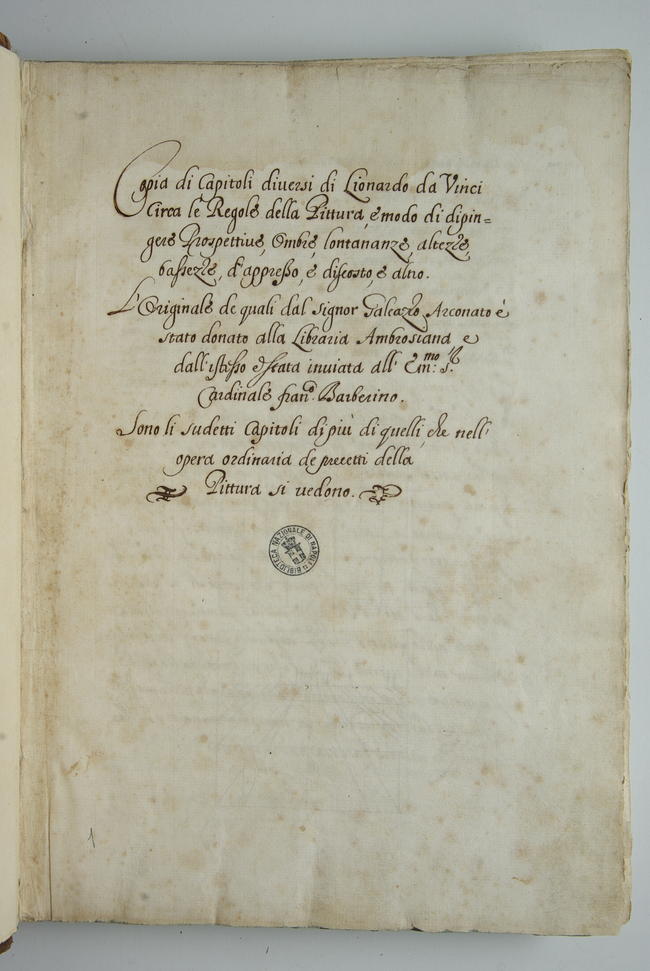 Copia di Capitoli diuersi di Lionardo da Vinci
Circa le Regole della Pittura, e modo di dipin=
gere Prospettiue, Ombre, lontananze, altezze,
bassezze, d'appresso, e discosto, e altro.
L'Originale de quali dal signor Galeazzo Arconato è
stato donato alla Libraria Ambrosiana e
dall'istesso è stata inuiata all' Em:mo S.r
Cardinale fran.o Barberino.
Sono li sudetti Capitoli di più di quelli, che nell'
opera ordinaria de precetti della
Pittura si uedono.
BIBLIOTECA NAZIONALE DI NAPOLI
1